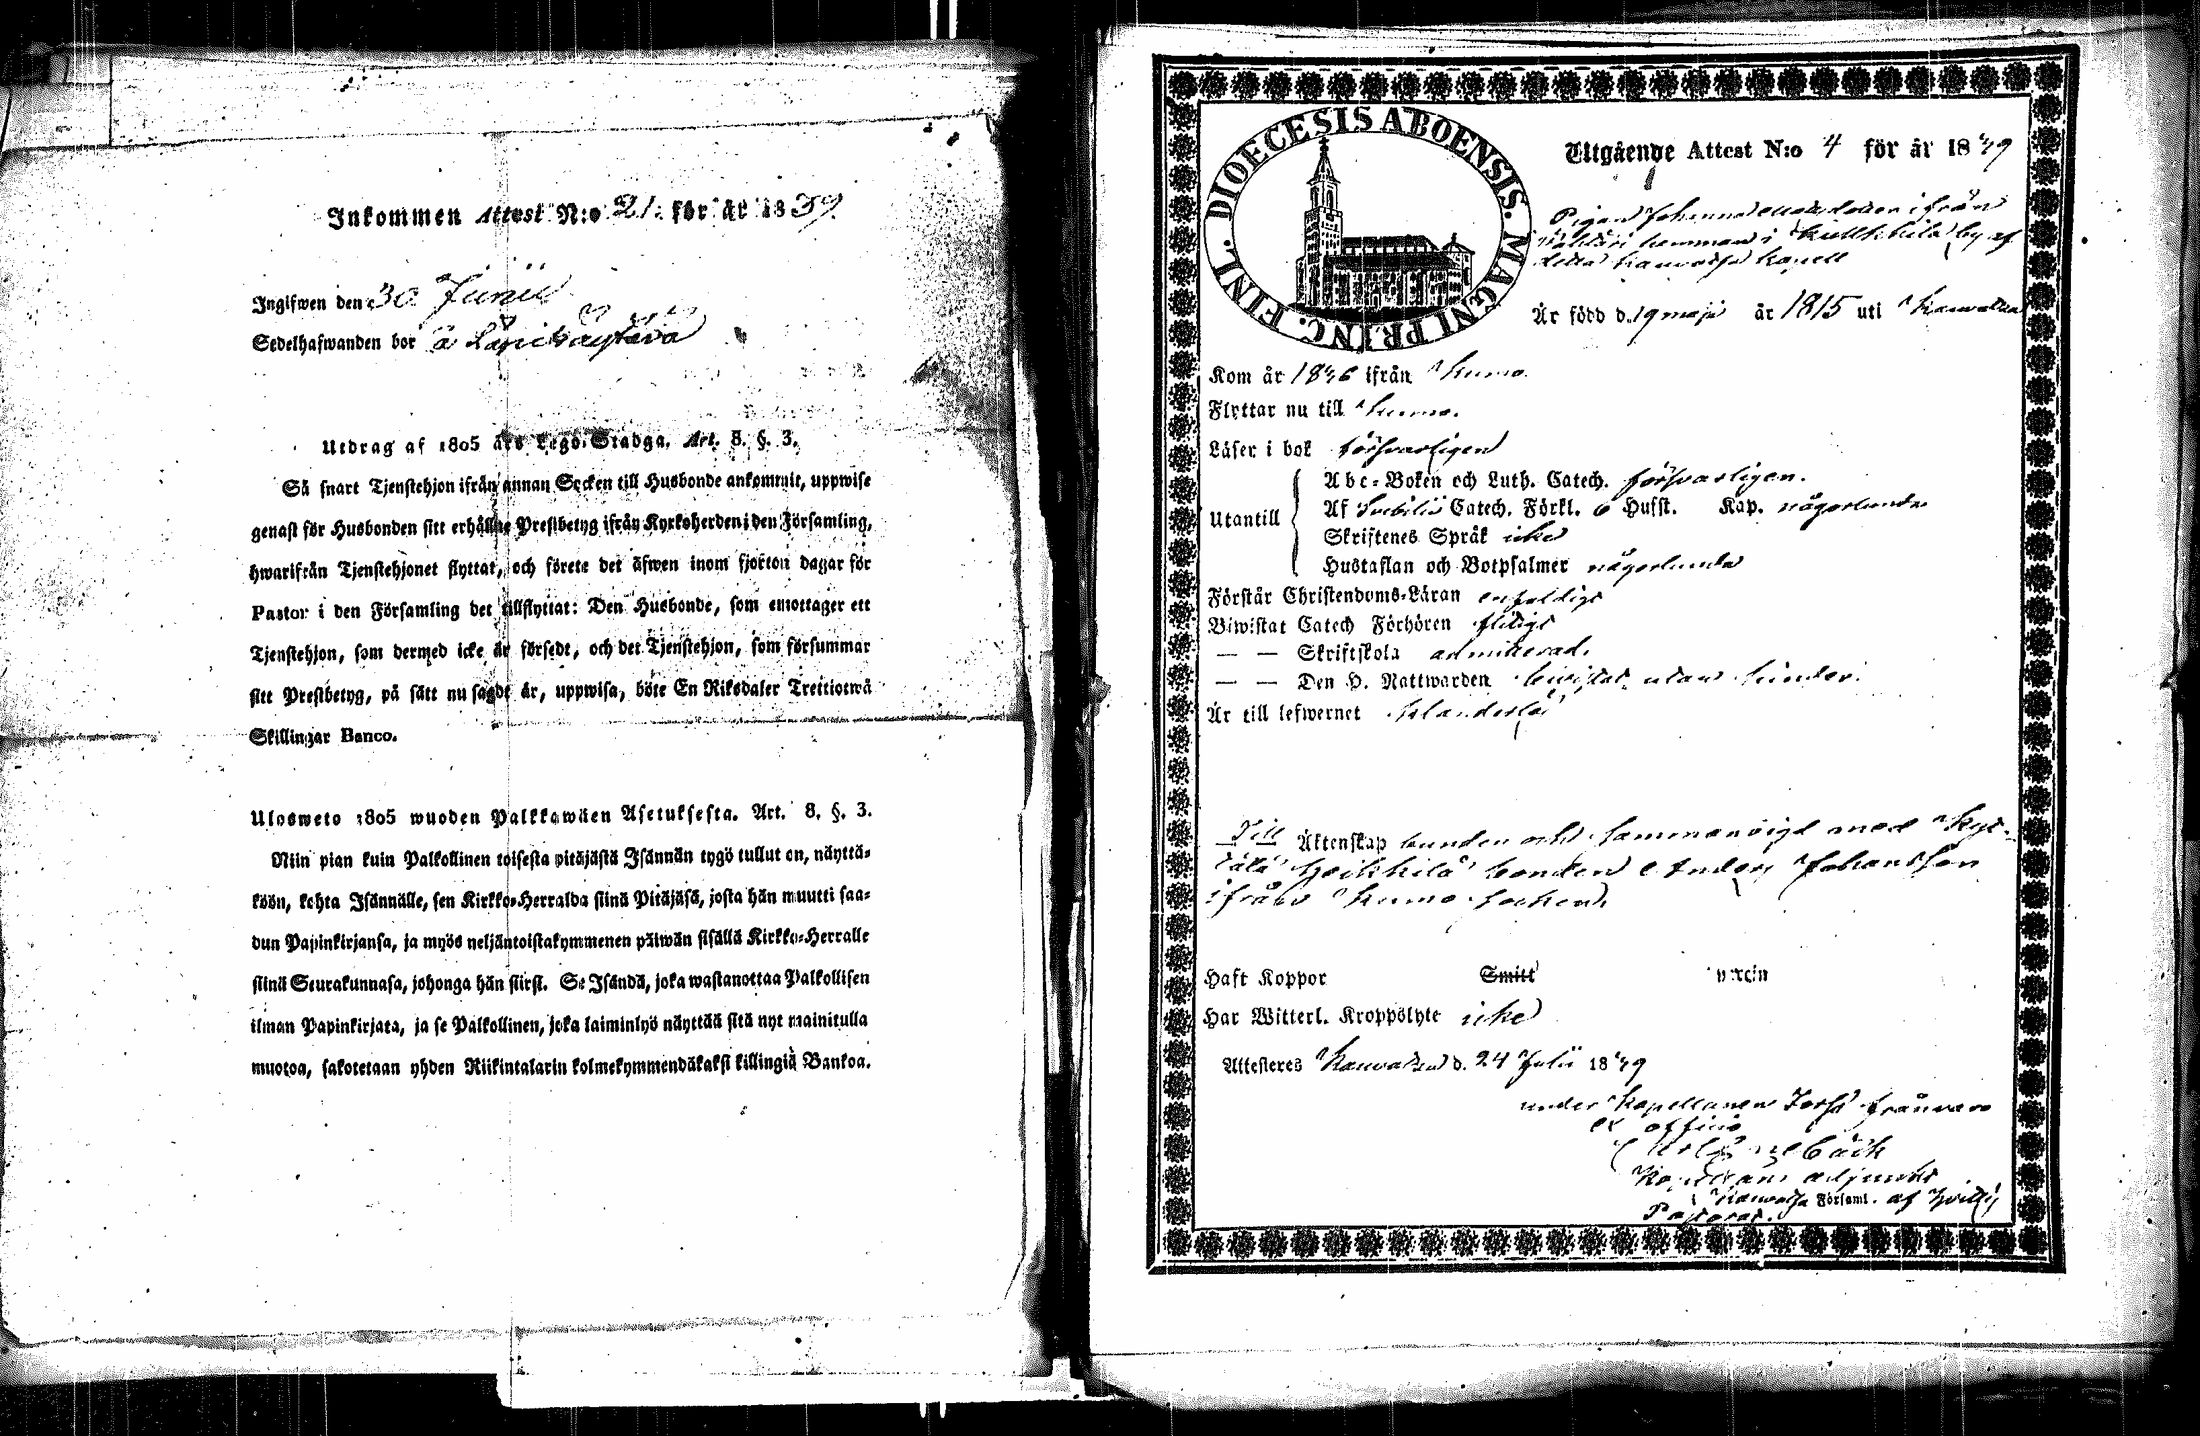 Inkommen Attest N:o 21. för år 1839
Ingifwen den 30 Junii
Sedelhafwanden bor å
Utdrag af 1805 års Lego-Stadga. Art. 8. §. 3.
Så snart Tjenstehjon ifrån annan Socken till Husbonde ankommit, uppwise
genast för Husbonden sitt erhållne Prestbetyg ifrån Kyrkoherden i den Församling,
hwarifrån Tjenstehjonet flyttat, och förete det äfwen inom fjorton dagar för
Pastor i den Församling det tillflyttat: Den Husbonde, som emottager ett
Tjenstehjon, som dermed icke är försedt, och det Tjenstehjon, som försummar
sitt Prestbetyg, på sätt nu sagdt är, uppwisa, böte En Riksdaler Trettiotwå
Skillingar Banco.
Ulosweto 1805 wuoden Palkkawäen Asetuksesta. Art. 8. §. 3.
Niin pian kuin Palkollinen toisesta pitäjästä Isännän tygö tullut on, näyttä-
köön, kohta Isännälle, sen Kirkko-Herralda siinä Pitäjäsä, josta hän muutti saa-
dun Papinkirjansa, ja myös neljäntoistakymmenen päiwän sisällä Kirkko-Herralle
siinä Seurakunnasa, johonga hän siirsi. Se Isändä, joka wastanottaa Palkollisen
ilman Papinkirjata, ja se Palkollinen, joka laiminlyö näyttää sitä nyt mainitulla
muotoa, sakotetaan yhden Riikintalarin kolmekymmendäkaksi killingiä Bankoa.
DIOECESIS ABOENSIS. MAGNI PRINC. FINL.
Utgående Attest N:o 4 för år 1849
Pigan Johanna ifrån
hemman i by af
detta kapell
Är född d. 19 maji år 1815 uti
Kom år 1846 ifrån Kumo.
Flyttar nu till Kumo.
Läser i bok försvarligen
Utantill
Abc-Boken och Luth. Catech. försvarligen.
Af Svebilii Catech. Förkl. 6 Husst. Kap. någorlunda
Skriftenes Språk icke
Hustaflan och Botpsalmer någorlunda
Förstår Christendoms-Läran enfaldigt
Biwistat Catech Förhören flitigt
— — Skriftskola admitterad.
— — Den H. Nattwarden bevistat utan hinder.
Är till lefwernet oklanderlig
Till Äktenskap bunden och sammanvigd med
bonden Anders Johansson
ifrån Kumo socken.
Haft Koppor Smitt
Har Witterl. Kroppslyte icke
Attesteres d. 24 Julii 1849
under Kapellanen frånvaro
ex officio
Kapellans adjunkt
Församl. af
Pastorat.